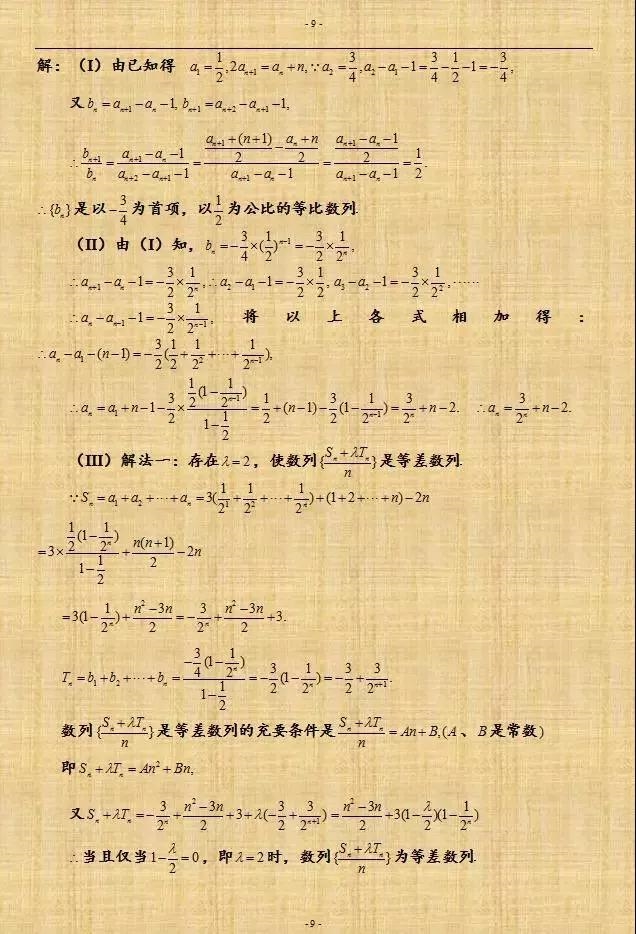 - 9 -
解：（I）由已知得 $a_1=\frac{1}{2},2a_{n+1}=a_n+n,\because a_2=\frac{3}{4},a_2-a_1-1=\frac{3}{4}-\frac{1}{2}-1=-\frac{3}{4},$
又 $b_n=a_{n+1}-a_n-1,\ b_{n+1}=a_{n+2}-a_{n+1}-1,$
$\therefore\frac{b_{n+1}}{b_n}=\frac{a_{n+1}-a_n-1}{a_{n+2}-a_{n+1}-1}=\frac{\frac{a_{n+1}+(n+1)}{2}-\frac{a_n+n}{2}}{a_{n+1}-a_n-1}=\frac{\frac{a_{n+1}-a_n-1}{2}}{a_{n+1}-a_n-1}=\frac{1}{2}.$
$\therefore\{b_n\}$是以$-\frac{3}{4}$为首项，以$\frac{1}{2}$为公比的等比数列.
（II）由（I）知，$b_n=-\frac{3}{4}\times(\frac{1}{2})^{n-1}=-\frac{3}{2}\times\frac{1}{2^n},$
$\therefore a_{n+1}-a_n-1=-\frac{3}{2}\times\frac{1}{2^n},\therefore a_2-a_1-1=-\frac{3}{2}\times\frac{1}{2},\ a_3-a_2-1=-\frac{3}{2}\times\frac{1}{2^2},\cdots\cdots$
$\therefore a_n-a_{n-1}-1=-\frac{3}{2}\times\frac{1}{2^{n-1}},$ 将以上各式相加得：
$\therefore a_n-a_1-(n-1)=-\frac{3}{2}(\frac{1}{2}+\frac{1}{2^2}+\cdots+\frac{1}{2^{n-1}}),$
$\therefore a_n=a_1+n-1-\frac{3}{2}\times\frac{\frac{1}{2}(1-\frac{1}{2^{n-1}})}{1-\frac{1}{2}}=\frac{1}{2}+(n-1)-\frac{3}{2}(1-\frac{1}{2^{n-1}})=\frac{3}{2^n}+n-2.\ \therefore a_n=\frac{3}{2^n}+n-2.$
（III）解法一：存在$\lambda=2$，使数列$\{\frac{S_n+\lambda T_n}{n}\}$是等差数列.
$\because S_n=a_1+a_2+\cdots+a_n=3(\frac{1}{2^1}+\frac{1}{2^2}+\cdots+\frac{1}{2^n})+(1+2+\cdots+n)-2n$
$=3\times\frac{\frac{1}{2}(1-\frac{1}{2^n})}{1-\frac{1}{2}}+\frac{n(n+1)}{2}-2n$
$=3(1-\frac{1}{2^n})+\frac{n^2-3n}{2}=-\frac{3}{2^n}+\frac{n^2-3n}{2}+3.$
$T_n=b_1+b_2+\cdots+b_n=\frac{-\frac{3}{4}(1-\frac{1}{2^n})}{1-\frac{1}{2}}=-\frac{3}{2}(1-\frac{1}{2^n})=-\frac{3}{2}+\frac{3}{2^{n+1}}.$
数列$\{\frac{S_n+\lambda T_n}{n}\}$是等差数列的充要条件是$\frac{S_n+\lambda T_n}{n}=An+B,(A$、$B$是常数$)$
即$S_n+\lambda T_n=An^2+Bn,$
又$S_n+\lambda T_n=-\frac{3}{2^n}+\frac{n^2-3n}{2}+3+\lambda(-\frac{3}{2}+\frac{3}{2^{n+1}})=\frac{n^2-3n}{2}+3(1-\frac{\lambda}{2})(1-\frac{1}{2^n})$
$\therefore$当且仅当$1-\frac{\lambda}{2}=0$，即$\lambda=2$时，数列$\{\frac{S_n+\lambda T_n}{n}\}$为等差数列.
- 9 -